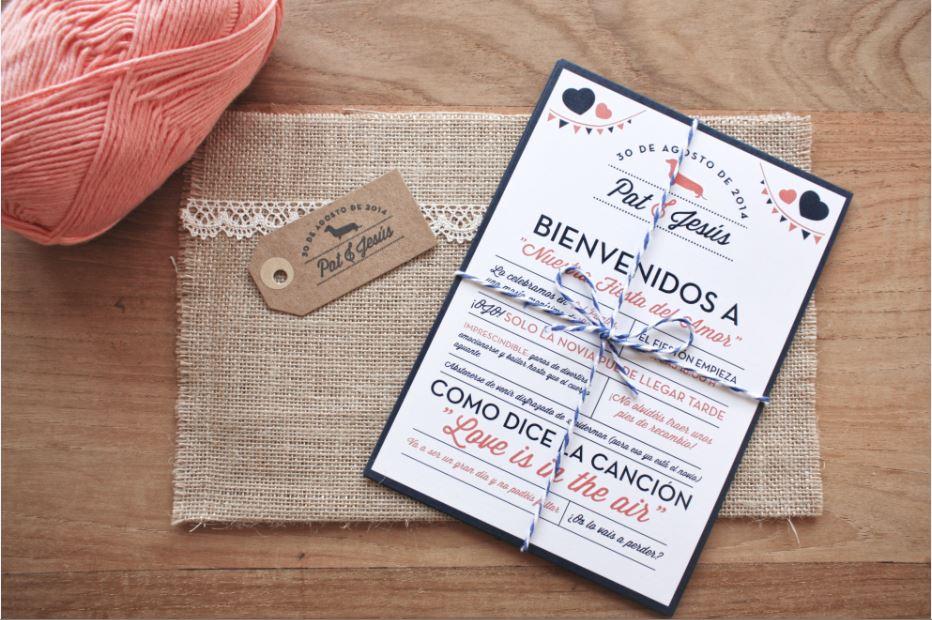 30 DE AGOSTO DE 2014
Pat & Jesús
30 DE AGOSTO DE 2014
Pat & Jesús
BIENVENIDOS A
"Nuestra Fiesta del Amor"
La celebramos en
una
EL FIESTÓN EMPIEZA
¡OJO! SOLO LA NOVIA PUEDE LLEGAR TARDE
IMPRESCINDIBLE: ganas de divertirse
emocionarse y bailar hasta que el cuerpo
aguante
¡No olvidéis traer unos
pies de recambio!
Abstenerse de venir disfrazado de Spiderman (para eso ya está el novio)
COMO DICE LA CANCIÓN
"Love is in the air"
Va a ser un gran día y no podéis faltar
¿Os lo vais a perder?